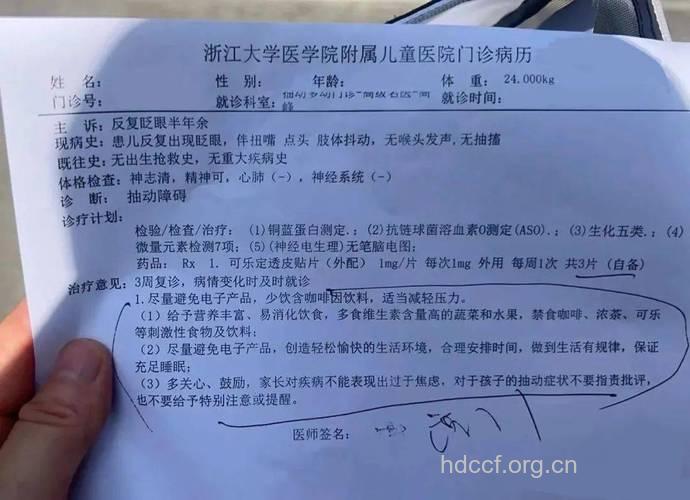 浙江大学医学院附属儿童医院门诊病历
姓 名: 性 别: 年龄: 体 重: 24.000kg
门诊号: 就诊科室: 就诊时间:
主 诉: 反复眨眼半年余
现病史: 患儿反复出现眨眼, 伴扭嘴 点头 肢体抖动, 无喉头发声, 无抽搐
既往史: 无出生抢救史, 无重大疾病史
体格检查: 神志清, 精神可, 心肺 (-) , 神经系统 (-)
诊 断: 抽动障碍
诊疗计划:
检验/检查/治疗: (1)铜蓝蛋白测定.; (2)抗链球菌溶血素O测定(ASO).; (3)生化五类.; (4)
微量元素检测7项; (5)(神经电生理)无笔脑电图;
药品: Rx 1. 可乐定透皮贴片(外配) 1mg/片 每次1mg 外用 每周1次 共3片 (自备)
治疗意见: 3周复诊, 病情变化时及时就诊
1.尽量避免电子产品, 少饮含咖啡因饮料, 适当减轻压力。
(1) 给予营养丰富、易消化饮食, 多食维生素含量高的蔬菜和水果, 禁食咖啡、浓茶、可乐
等刺激性食物及饮料;
(2) 尽量避免电子产品, 创造轻松愉快的生活环境, 合理安排时间, 做到生活有规律, 保证
充足睡眠;
(3) 多关心、鼓励, 家长对疾病不能表现出过于焦虑, 对于孩子的抽动症状不要指责批评,
也不要给予特别注意或提醒。
医师签名:
hdccf.org.cn